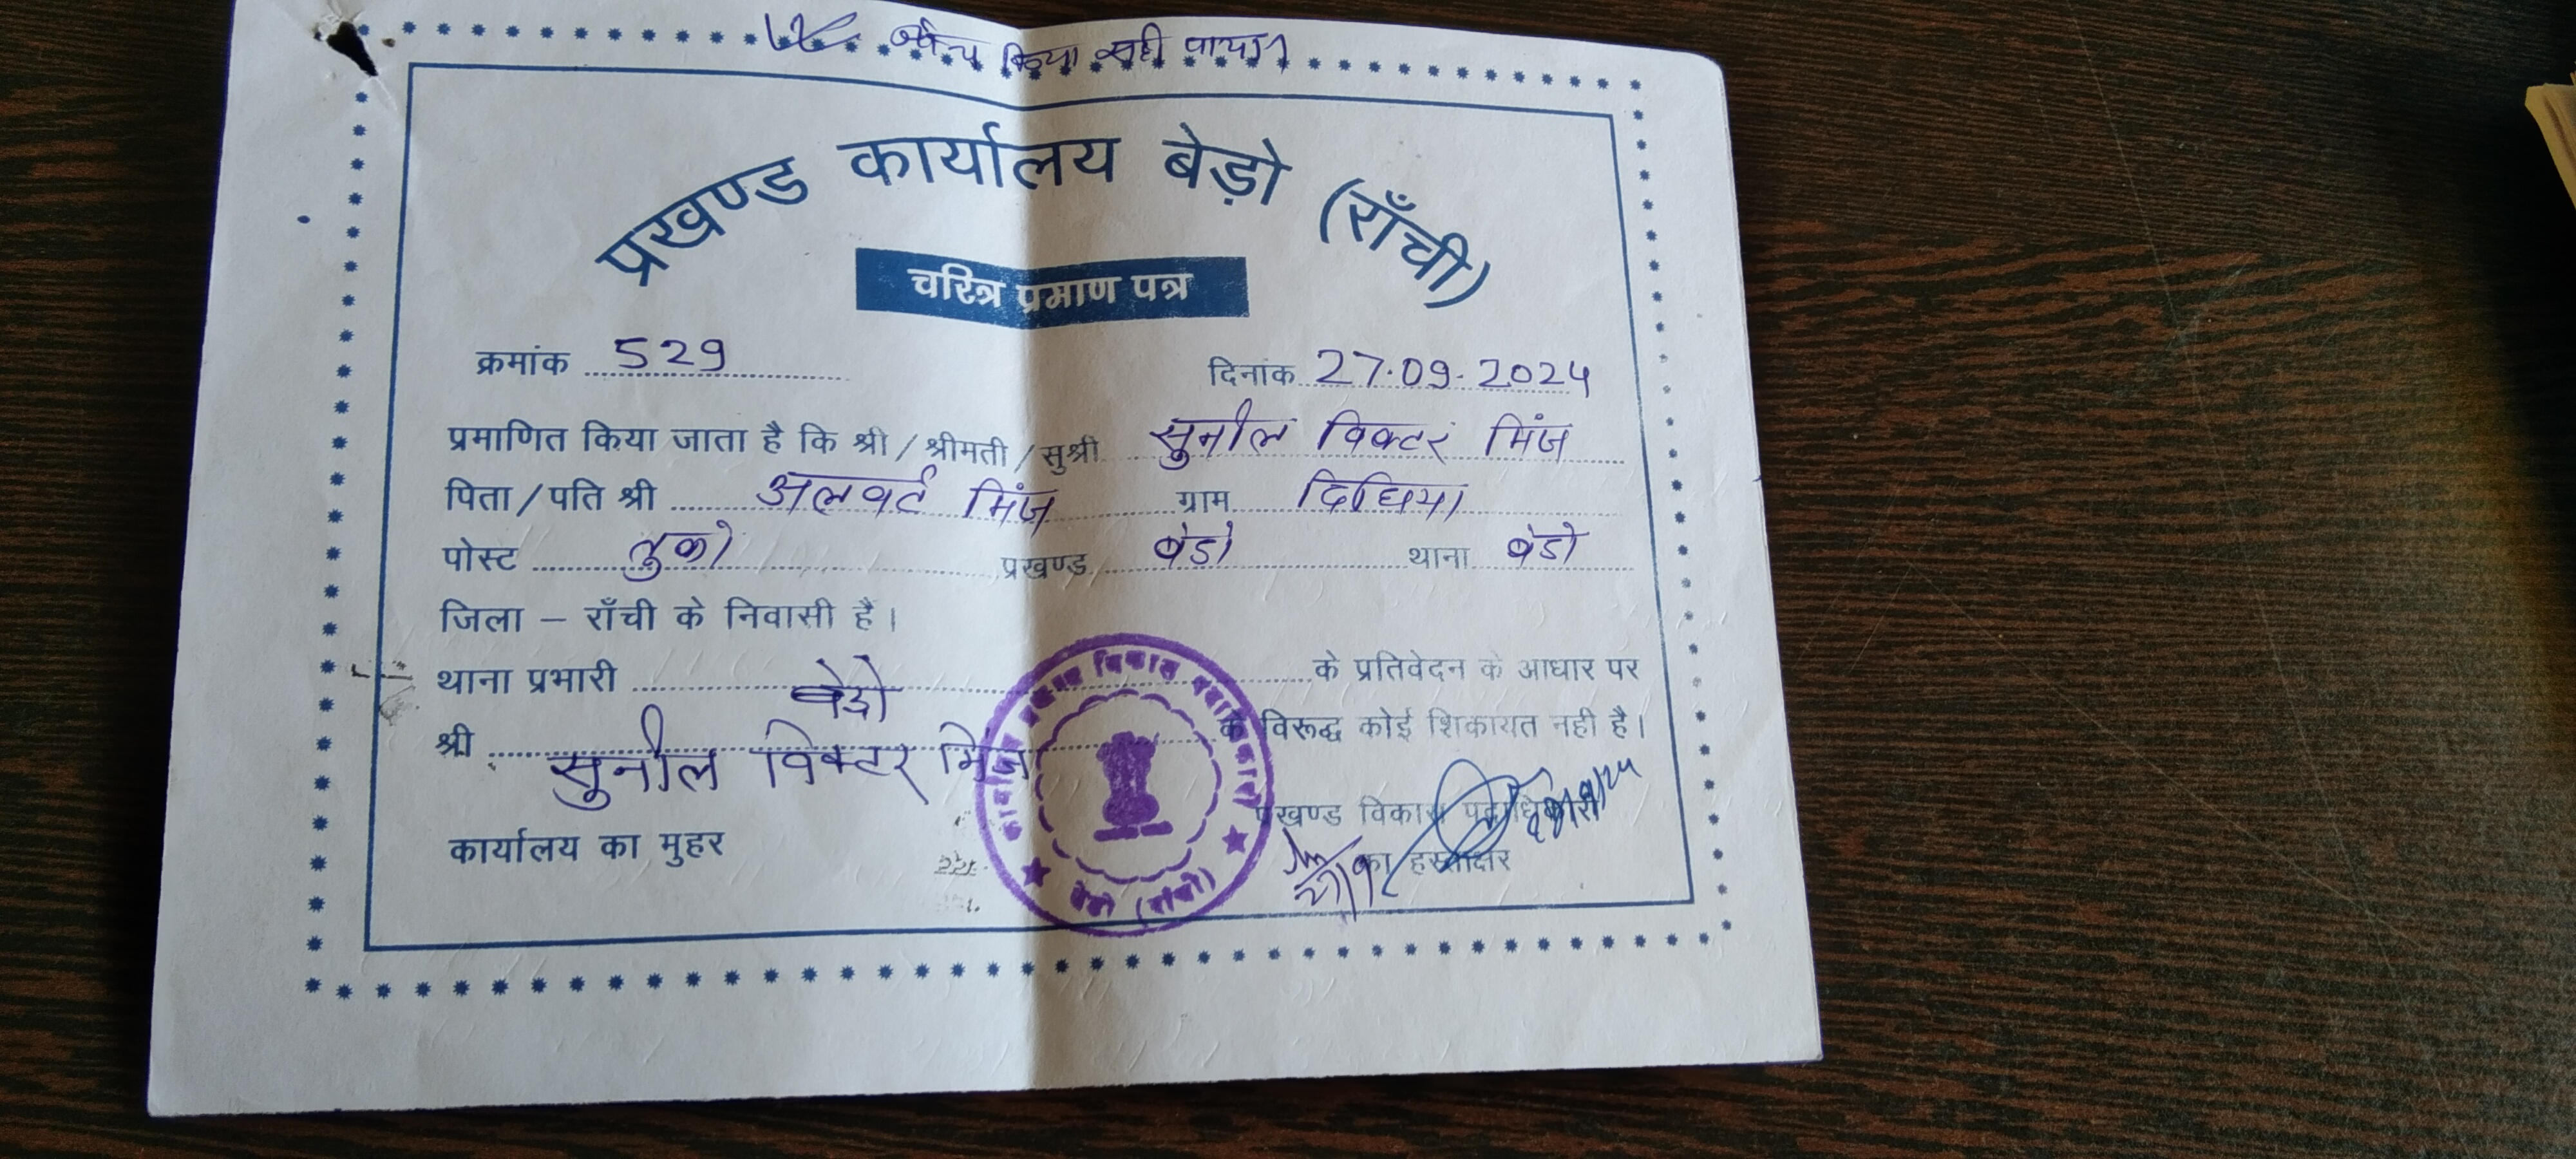 जाँच किया सही पाया।
प्रखण्ड कार्यालय बेड़ो (राँची)
चरित्र प्रमाण पत्र
क्रमांक 529 दिनांक 27.09.2024
प्रमाणित किया जाता है कि श्री / श्रीमती / सुश्री सुनील विक्टर मिंज
पिता / पति श्री अलबर्ट मिंज ग्राम दिघिया
पोस्ट तुको प्रखण्ड बेड़ो थाना बेड़ो
जिला – राँची के निवासी हैं।
थाना प्रभारी बेड़ो के प्रतिवेदन के आधार पर
श्री सुनील विक्टर मिंज के विरूद्ध कोई शिकायत नही है।
प्रखण्ड विकास पदाधिकारी
कार्यालय का मुहर का हस्ताक्षर
कार्यालय प्रखण्ड विकास पदाधिकारी
बेड़ो (राँची)